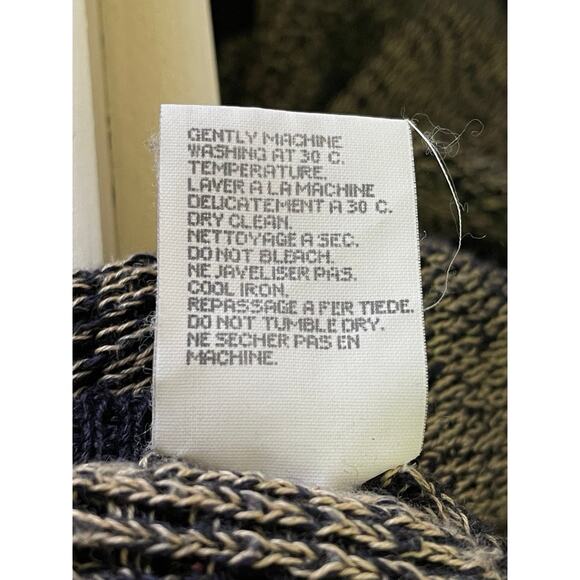 GENTLY MACHINE
WASHING AT 30 C.
TEMPERATURE.
LAVER A LA MACHINE
DELICATEMENT A 30 C.
DRY CLEAN.
NETTOYAGE A SEC.
DO NOT BLEACH.
NE JAVELISER PAS.
COOL IRON.
REPASSAGE A FER TIEDE.
DO NOT TUMBLE DRY.
NE SECHER PAS EN
MACHINE.